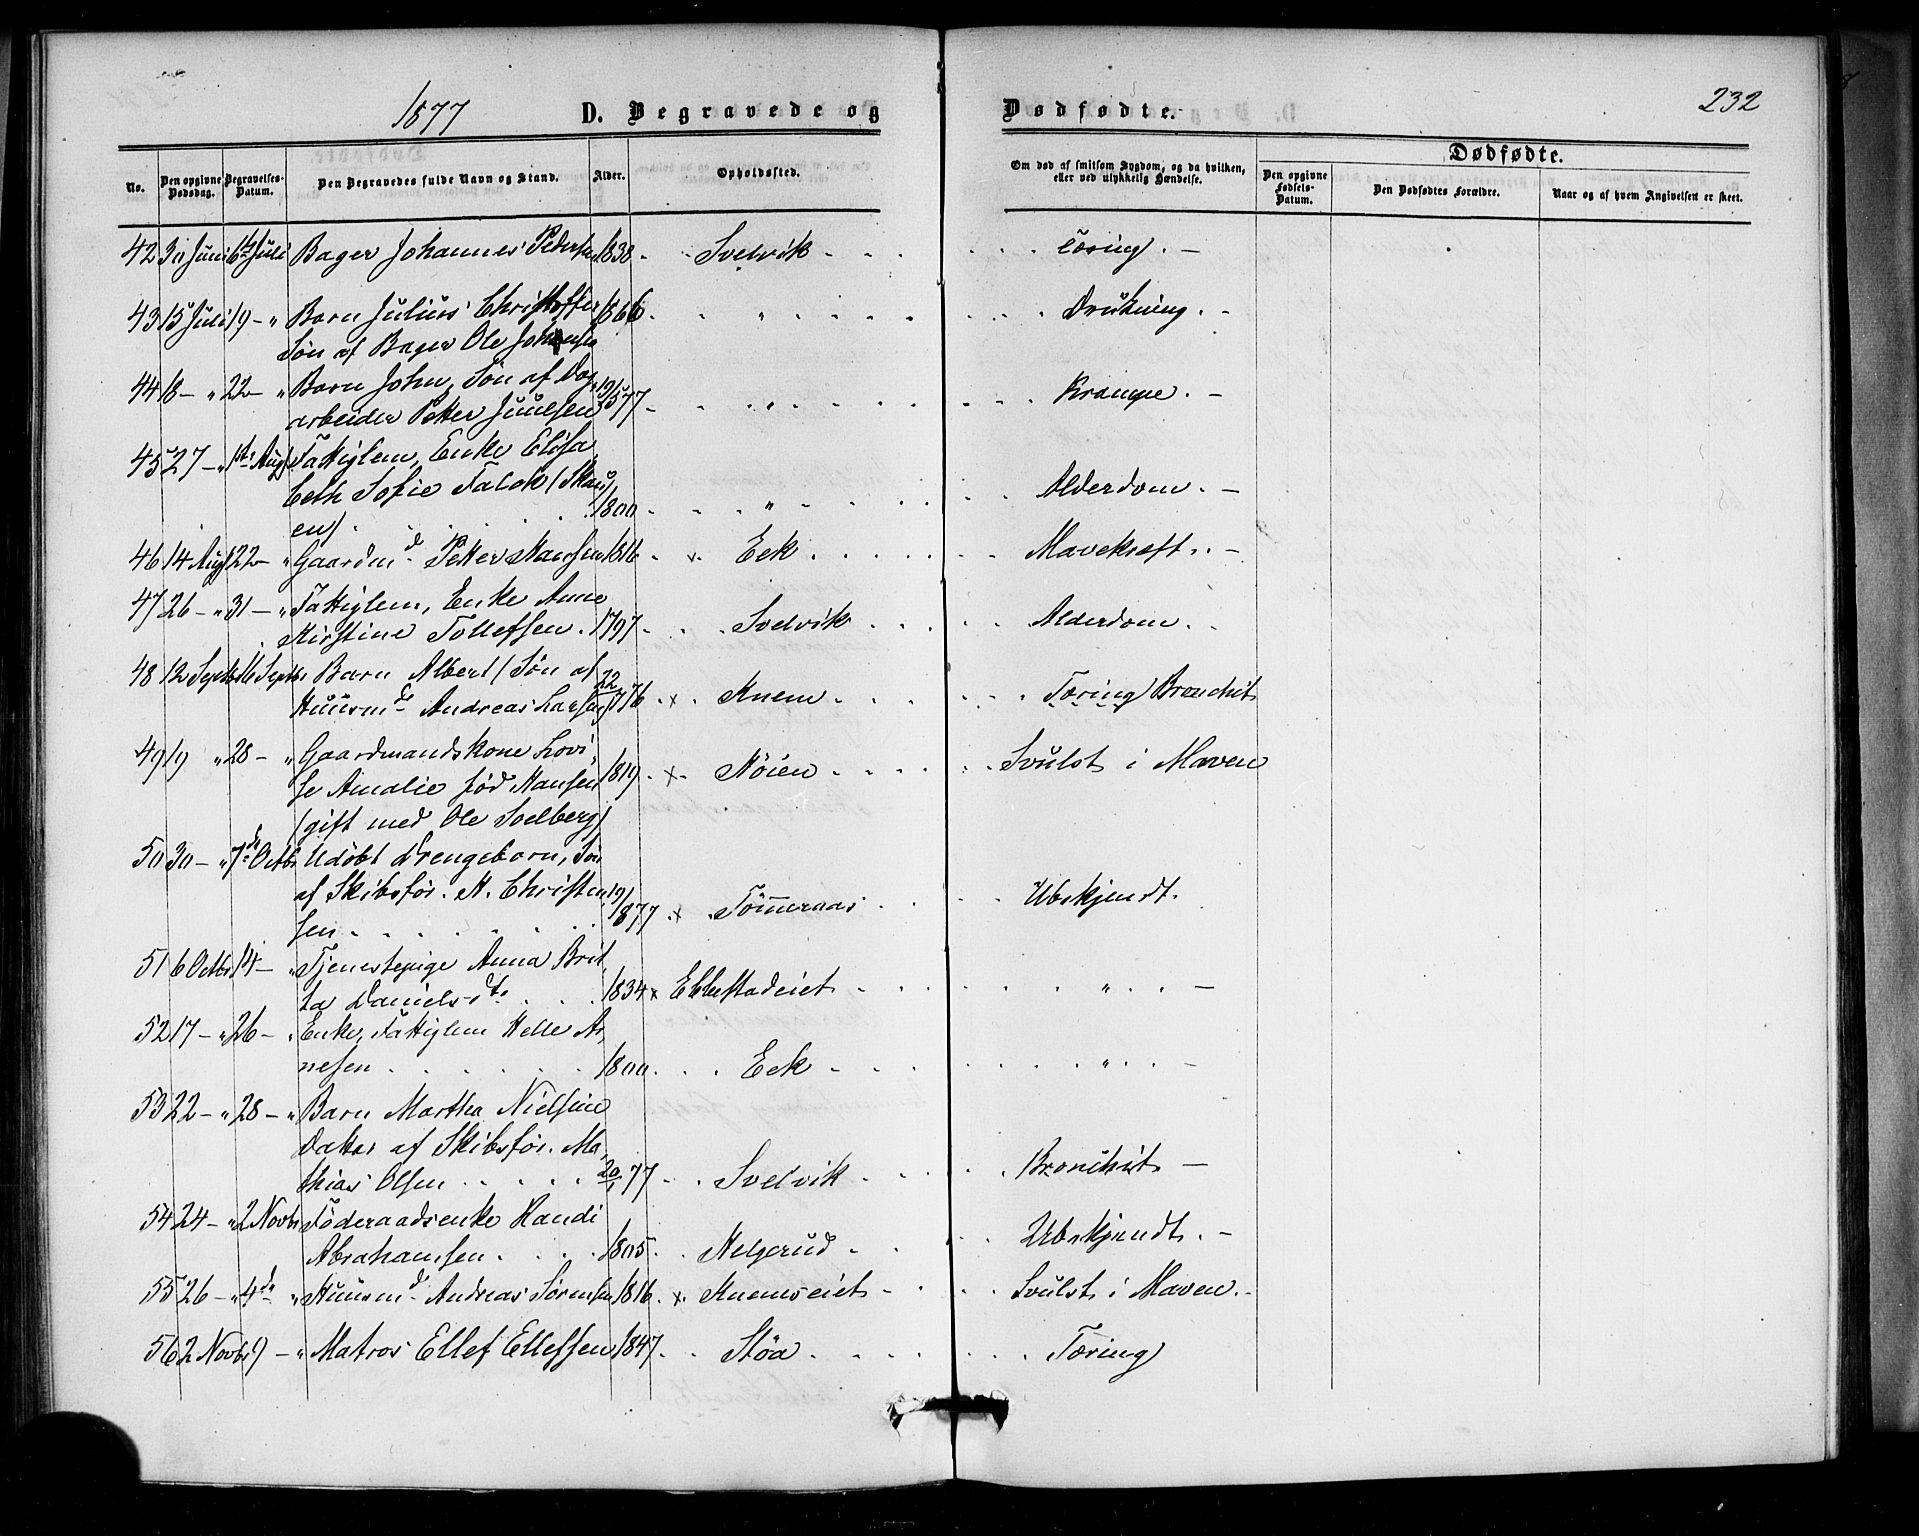 1877 D. Begravede og Dødfødte. 232
No. Den opgivne Dødsdag. Begravelses-Datum. Den Begravedes fulde Navn og Stand. Alder. Opholdssted. Om død af smitsom Sygdom, og da hvilken, eller ved ulykkelig Hændelse. Dødfødte. Den opgivne Fødsels-Datum. Den Dødfødtes Forældre. Naar og af hvem Angivelsen er skeet.
42 30 Juni 6te Juli Bager Johannes Pedersen 1838 Svelvik Tæring. -
43 15 Juli 19 - " Barn Julius Christoffer 1866 " Drukning. -
Søn af Bager Ole Johansen
44 18 - " 22 - " Barn John, Søn af Dag- 19/5 77 " Krampe. -
arbeider Petter Juulsen
45 27 - " 1ste Aug Fattiglem, Enke Elisa-
beth Sofie Falck (Skau- 1800 " Alderdom. -
en)
46 14 Aug 22 - " Gaardmd Petter Hansen 1816 x Eek Mavekræft. -
47 26 - " 31 - " Fattiglem, Enke Anne
Kirstine Tollefsen. 1797 Svelvik Alderdom.
48 12 Septbr 16 Septbr Barn Albert (Søn af
Huusmd Andreas Larsen 22/7 76 x Knem Tæring Bronchit
49 19 " 28 - " Gaardmandskone Lovi-
se Amalie fød Hansen 1819 x Nøien Svulst i Maven
(gift med Ole Solberg)
50 30 - " 7de Octbr Udøbt Drengebarn, Søn
af Skibsfør. N. Christen- 19/ 1877 x Tømmeraas Ubekjendt.
sen
51 6 Octbr 14 - " Tjenestepige Anna Brit-
ta Danielsdt. 1834 x Ebbestadeiet " -
52 17 - " 26 - " Enke, Fattiglem Helle Ar-
nesen 1800 Eek " -
53 22 - " 28 - " Barn Martha Nielsine
Datter af Skibsfør. Ma-
thias Olsen 20/ 77 Svelvik Bronchit -
54 24 - " 2 Novbr Føderaadsenke Randi
Abrahamsen 1805 Helgerud Ubekjendt. -
55 26 - " 4de " Huusmd Andreas Sørensen 1816 x Knemseiet Svulst i Maven. -
56 2 Novbr 9 - " Matros Ellef Ellefsen 1847 Støa Tæring